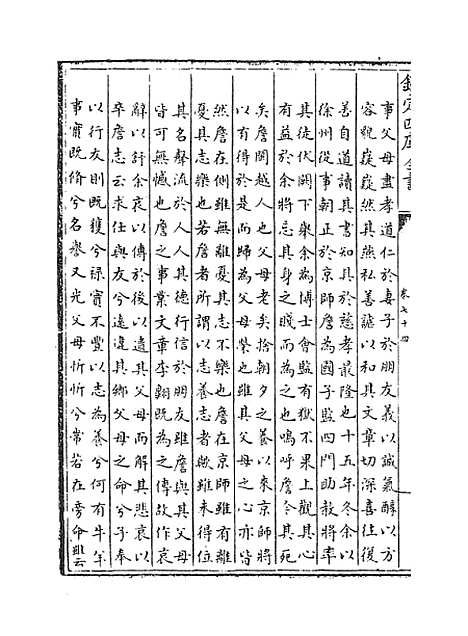 欽定四庫全書
卷七十四
事父母盡孝道仁於妻子於朋友義以誠氣醇以方
容貌嶷嶷然其燕私善謔以和其文章切深喜往復
善自道讀其書知其於慈孝最隆也十五年冬余以
徐州從事朝正於京師詹為國子監四門助敎將率
其徒伏闕下舉余為博士會監有獄不果上觀其心
有益於余將忘其身之賤而為之也嗚呼詹今其死
矣詹閩越人也父母老矣捨朝夕之養以來京師將
以有得於是而歸為父母榮也雖其父母之心亦皆
然詹在側雖無離憂其志不樂也詹在京師雖有離
憂其志樂也若詹者所謂以志養志者歟雖未得位
其名聲流於人人其德行信於朋友雖詹與其父母
皆可無憾也詹之事業文章李翺既為之傳故作哀
辭以舒余哀以傳於後以遺其父母而解其悲哀以
卒詹志云求仕與友兮逺違其鄉父母之命兮子奉
以行友則既獲兮祿實不豐以志為養兮何有牛羊
事實既脩兮名譽又光父母忻忻兮常若在旁命雖云